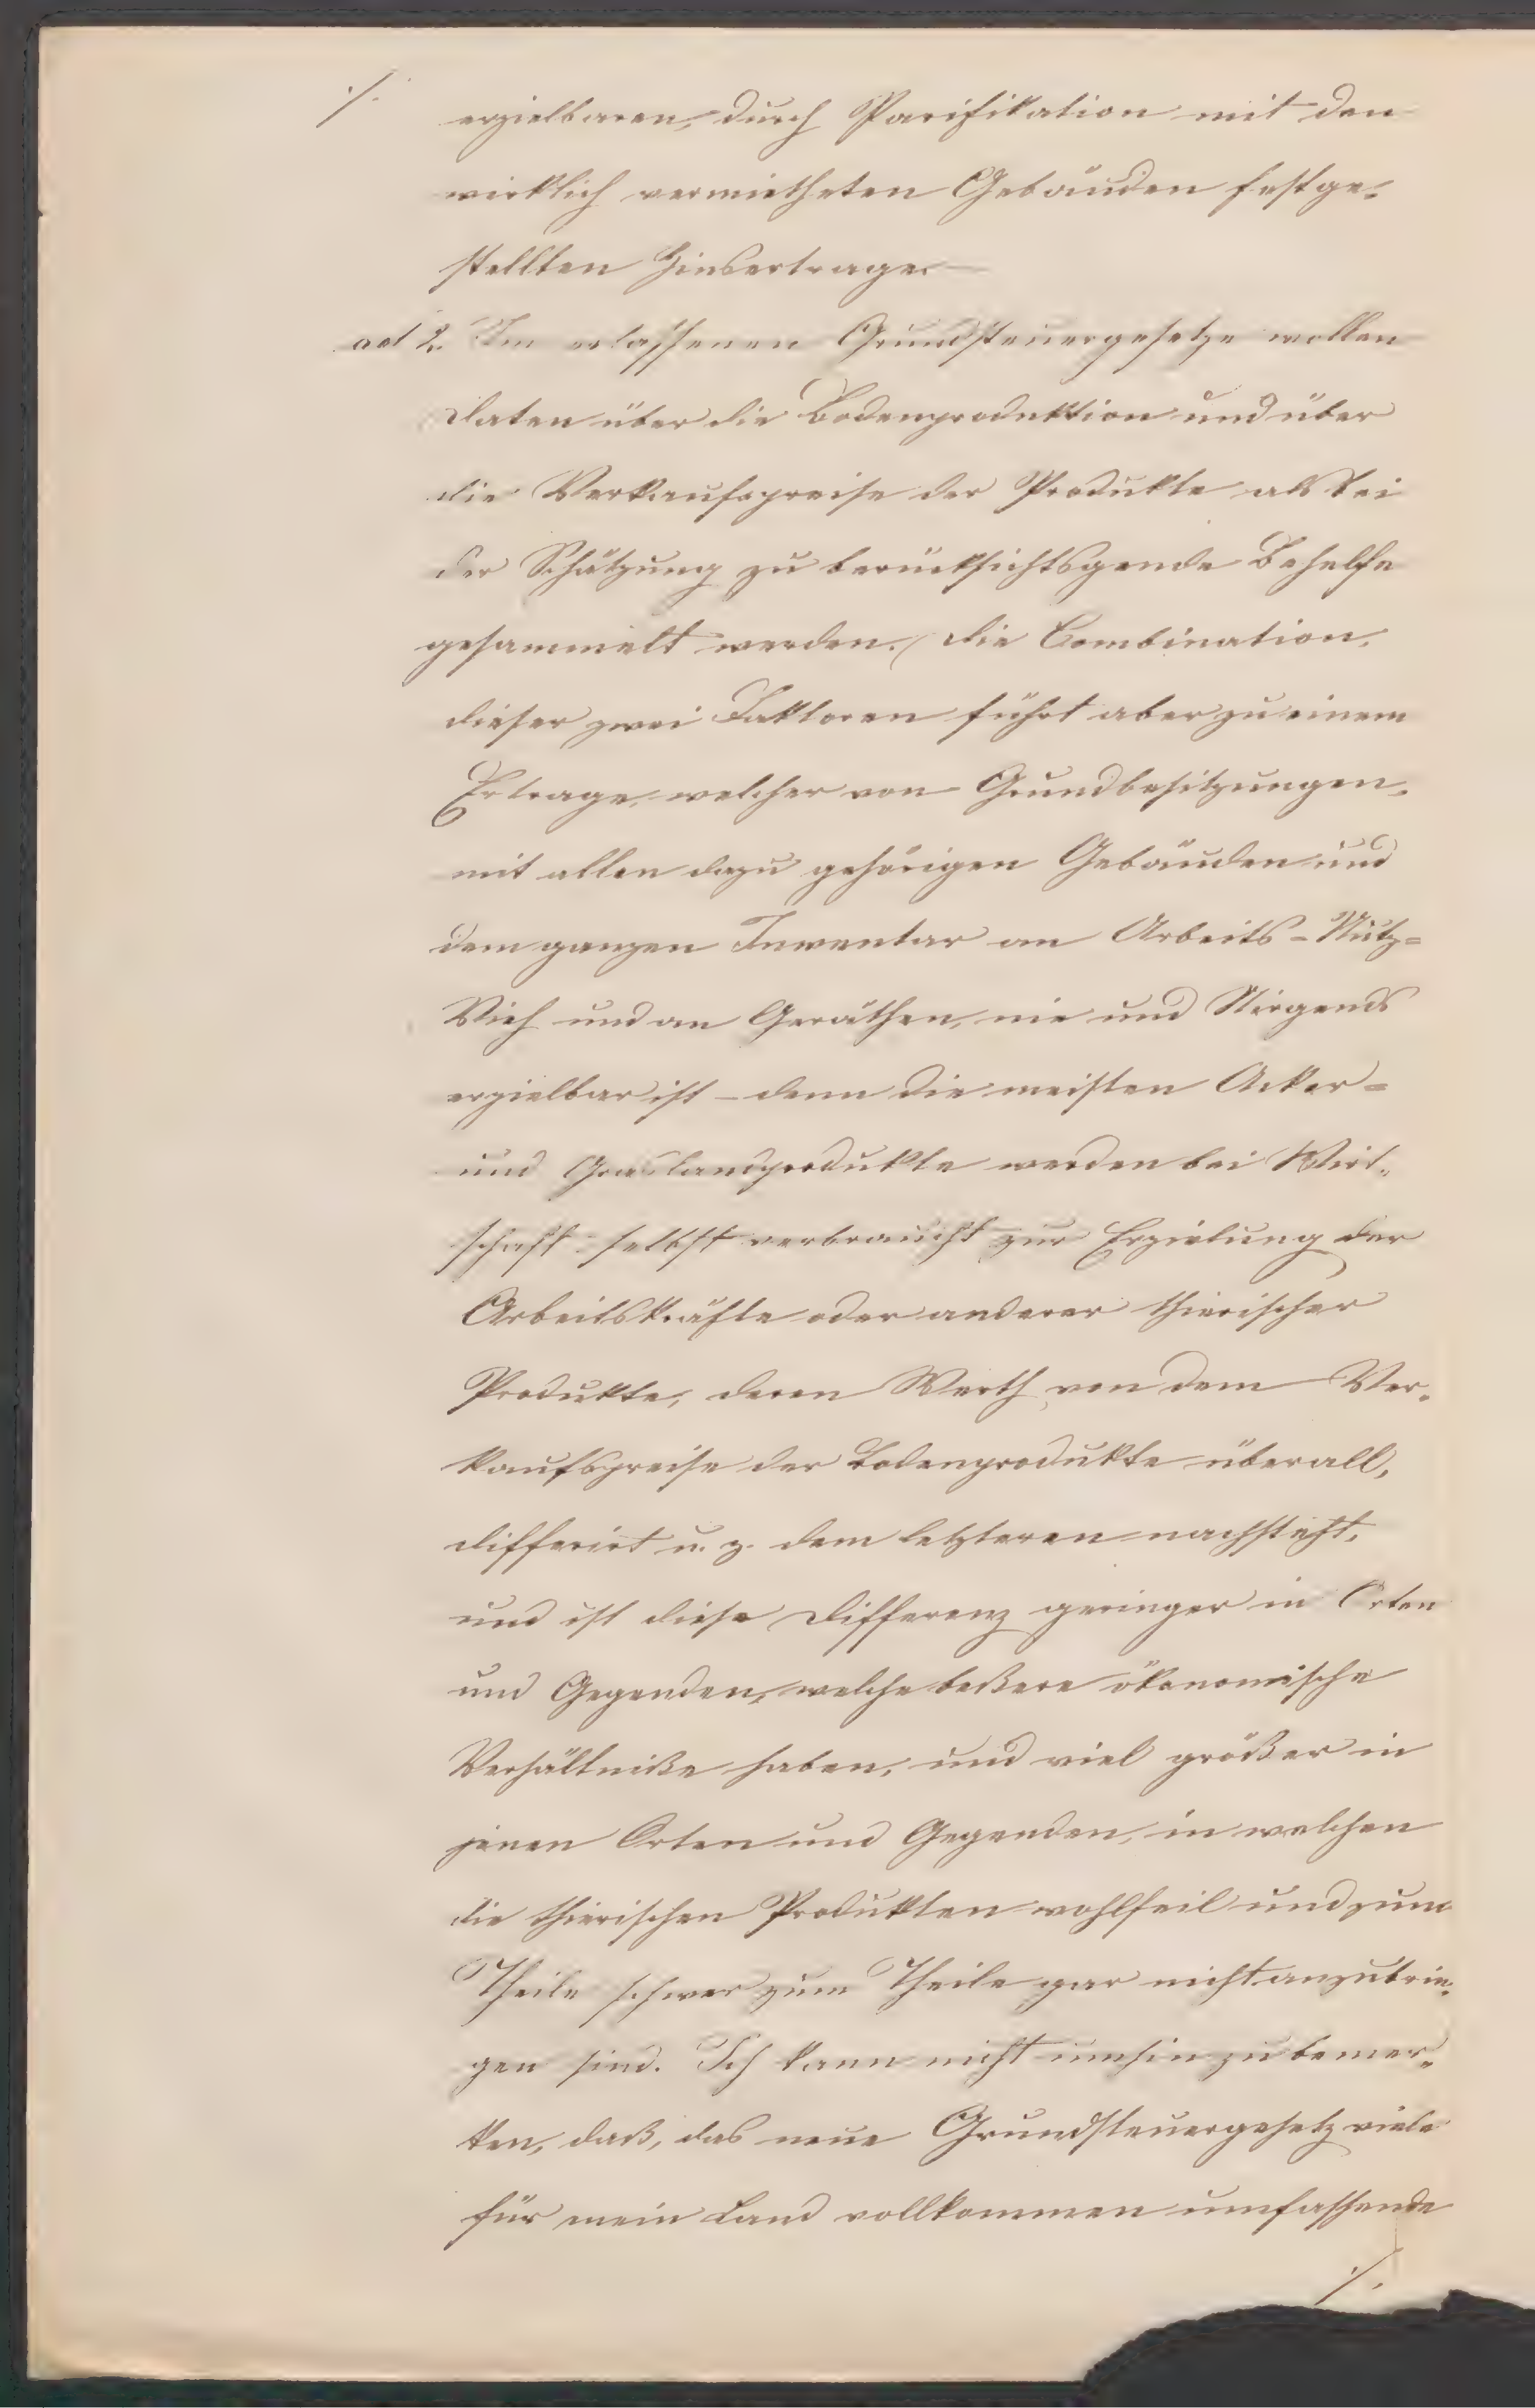 ./.
erzielbaren, durch Parifikation mit den
wirklich vermietheten Gebäuden festge-
stellten Zinsertrage.
ad 2. Im erlassenen Grundsteuergesetze wollen
Daten über die Bodenproduktion und über
die Verkaufspreise der Produkte als bei
der Schätzung zu berücksichtsgende Behelfe
gesammelt werden. Die Combination
dieser zwei Faktoren führt aber zu einem
Ertrage, welcher von Grundbesitzungen,
mit allen dazu gehörigen Gebäuden und
dem ganzen Inventar an Arbeits-Nutz-
Vieh und an Geräthen, nie und Nirgends
erzielbar ist – denn die meisten Acker-
und Graslandprodukte werden bei Wirt-
schaft selbst verbraucht zur Erzielung der
Arbeitskräfte oder anderer thierischer
Produkte, deren Werth von dem Ver-
kaufspreise der Bodenprodukte überall,
differirt u. z. dem letzteren nachsteht,
und ist diese Differenz geringer in Orten
und Gegenden, welche beßere ökonomische
Verhältniße haben, und viel größer in
jenen Orten und Gegenden, in welchen
die thierischen Produkten wohlfeil und zum
Theile schwer zum Theile gar nicht anzubrin-
gen sind. Ich kann nicht umhin zu bemer-
ken, daß, das neue Grundsteuergesetz viele
für mein Land vollkommen umfassende
./.